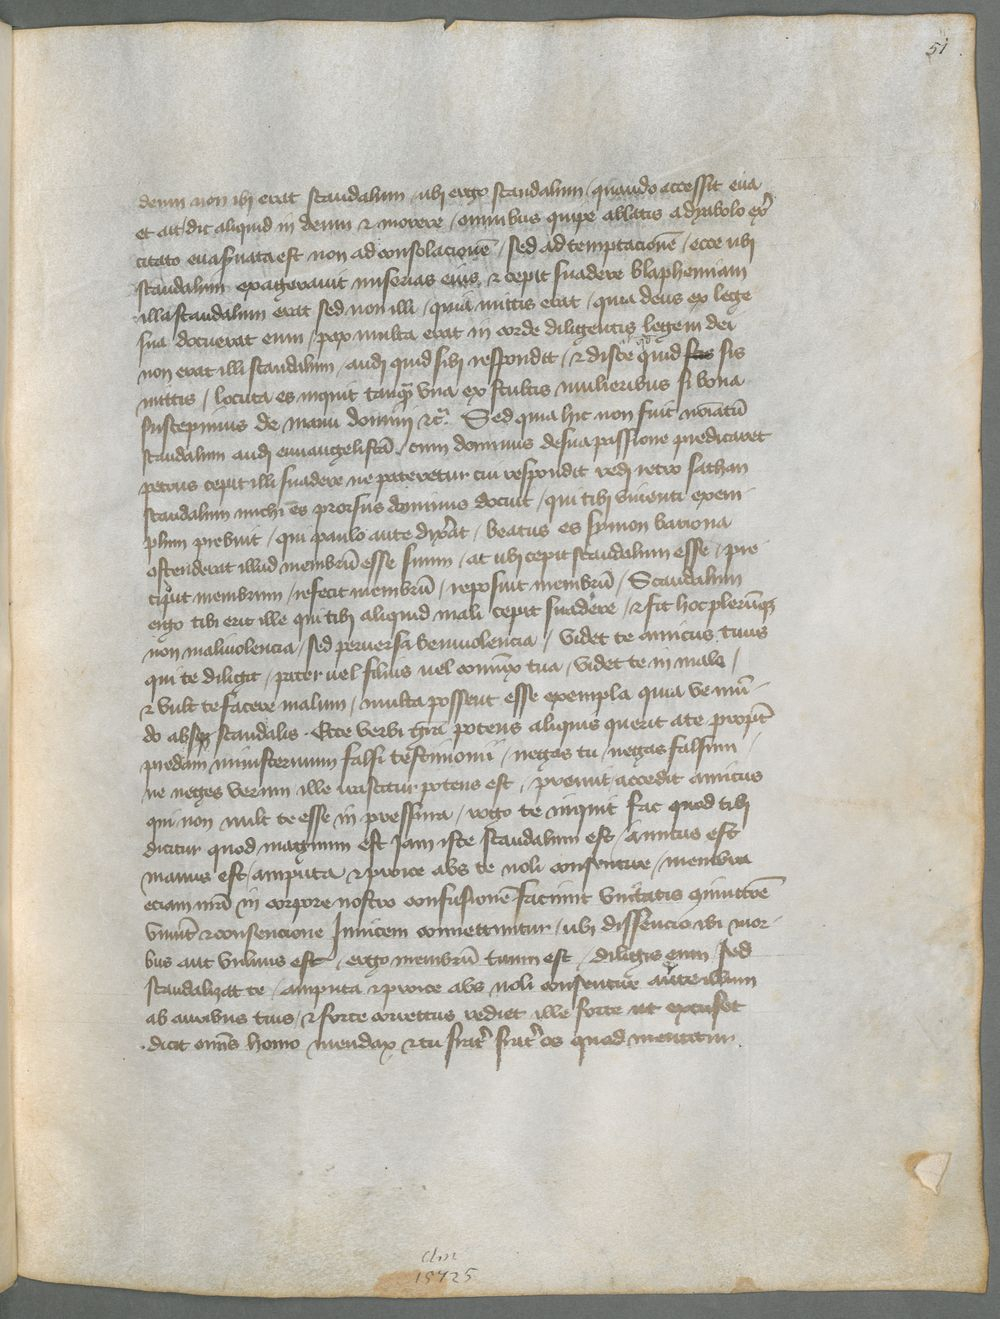 51
deum non ibi erat scandalum / ubi ergo scandalum / quando accessit eua
et ait / dic aliquid in deum & morere / omnibus quipe ablatis a dyabolo ex
citato eua seruata est non ad consolacionē / sed ad temptacionē / ecce ubi
scandalum exagerauit miserias eius & cepit suadere blaphemiam
illa scandalum erat sed non illi / quia mittis erat / quia deus ex lege
sua docuerat eum / pax multa erat in corde diligentis legem dei
non erat illi scandalum / audi quid sibi respondit / & disce quid sis
mittis / locuta es inquit tanqꝫ vna ex stultis mulieribus si bona
suscepimus de manu domini &c. Sed quia hic non fuit
scandalum audi euuangelistā / cum dominus de sua passione predicaret
petrus cepit illi suadere ne pateretur cui respondit redi retro sathan
scandalum michi es prorsus dominus docuit / qui tibi viuenti exem
plum prebuit / qui paulo ante dixerat / beatus es symon bariona
ostenderat illud membrū esse suum / at ubi cepit scandalum esse / pre
membrum / refecit membrū / reposuit membrū / Scandalum
ergo tibi erit ille qui tibi aliquid mali cepit suadere / & fit hoc plerūqꝫ
non maliuolencia / sed peruersa beniuolencia / Videt te amicus tuus
qui te diligit / pater uel filius uel coniūx tua / Videt te in malo /
& vult te facere malum / multa possent esse exempla quia ve mū
do absqꝫ scandalis . Ecce verbi grā potens aliquis querit a te propt
predam ministerium falsi testimonii / negas tu / negas falsum /
ne neges verum ille irascitur potens est / premit accedit amicus
qui non uult te esse in pressura / rogo te inquit fac quod tibi
dicitur quod magnum est Jam iste scandalum est / amicus est
manus est / amputa & proice abs te noli consentire / membra
eciam nrā in corpore nostro confusionē faciunt vnitatis
viuūt & consencione Inuicem connectuntur / ubi dissencio ibi mor
bus aut vulnus est / ergo membrū tuum est / diligis eum Sed
scandalizat te / amputa & proice abs noli consentire illum
ab auribus tuis / & forte correctus rediet ille forte ut excuset
dicit omīs homo mendax & tu os quod mentitur .
clm
15725